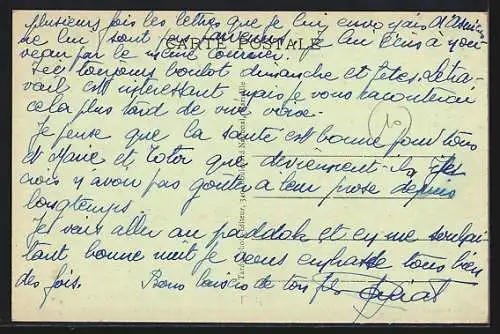 plusieurs fois les lettres que je lui envoyais d'
ne lui sont pas parvenues. Je lui écris à nou
veau par le même courrier.
CARTE POSTALE
Ici toujours boulot dimanche et fêtes. Le tra-
vail est intéressant mais je vous raconterai
cela plus tard de vive voix.
Je pense que la santé est bonne pour tous
et Marie et Totor que deviennent-ils. Je
crois n'avoir pas goûter à leur prose depuis
longtemps.
Je vais aller au paddock et en me souhai-
tant bonne nuit je vous embrasse tous bien
des fois. Bons baisers de ton fils